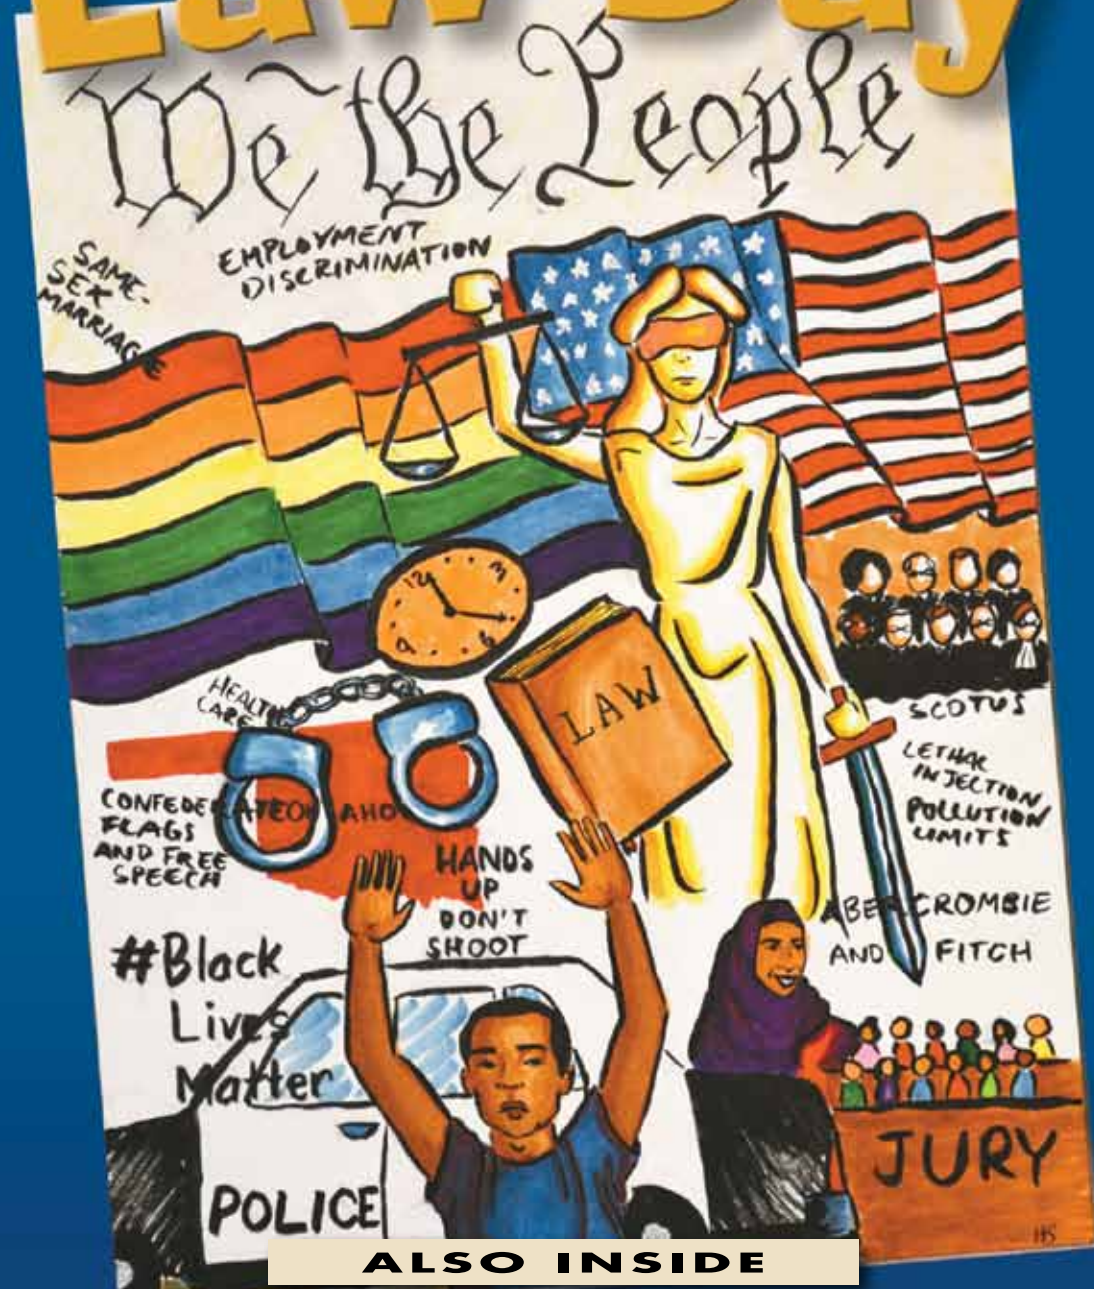 Law Day
We the People
SAME-
SEX
MARRIAGE
EMPLOYMENT
DISCRIMINATION
12
3
6
9
LAW
HEALTH
CARE
SCOTUS
LETHAL
INJECTION
POLLUTION
LIMITS
CONFEDERATE
FLAGS
AND FREE
SPEECH
HANDS
UP
DON'T
SHOOT
ABERCROMBIE
AND FITCH
#Black
Lives
Matter
POLICE
JURY
HS
ALSO INSIDE